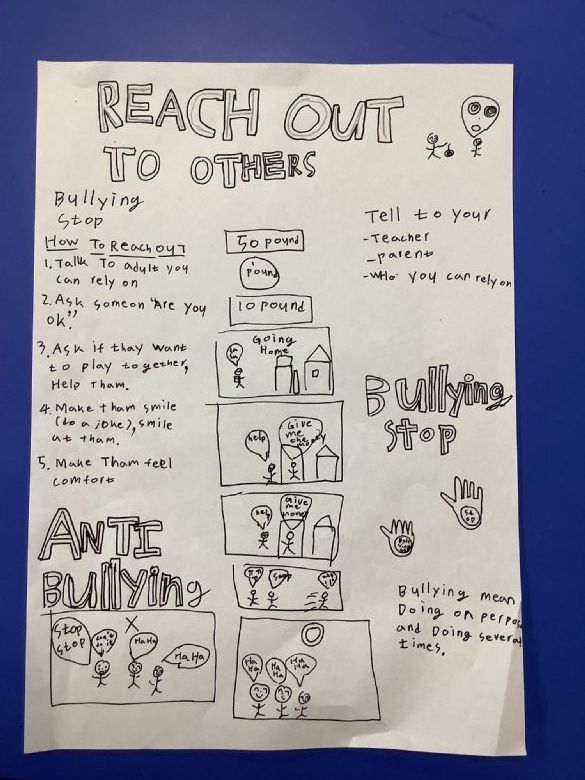 REACH OUT
TO OTHERS
Bullying
Stop
How To Reach out
1. Talk To adult you
can rely on
2. Ask someon "Are you
ok."
3. Ask if thay want
to play together,
Help Tham.
4. Make tham smile
(do a joke), smile
at tham.
5. Make Tham feel
comfort
ANTI
BUllying
Stop
Stop
don't
do it
HaHa
HaHa
50 pound
pound
10 pound
Going
Home
Ha
Ha
help
Give
me
money
help
Give
me
money
stop
Ha
Ha
Ha
Ha
Ha
Ha
Tell to your
-Teacher
-parent
-who you can rely on
Bullying
Stop
St
op
Bullying mean
Doing on perpose
and Doing several
times.